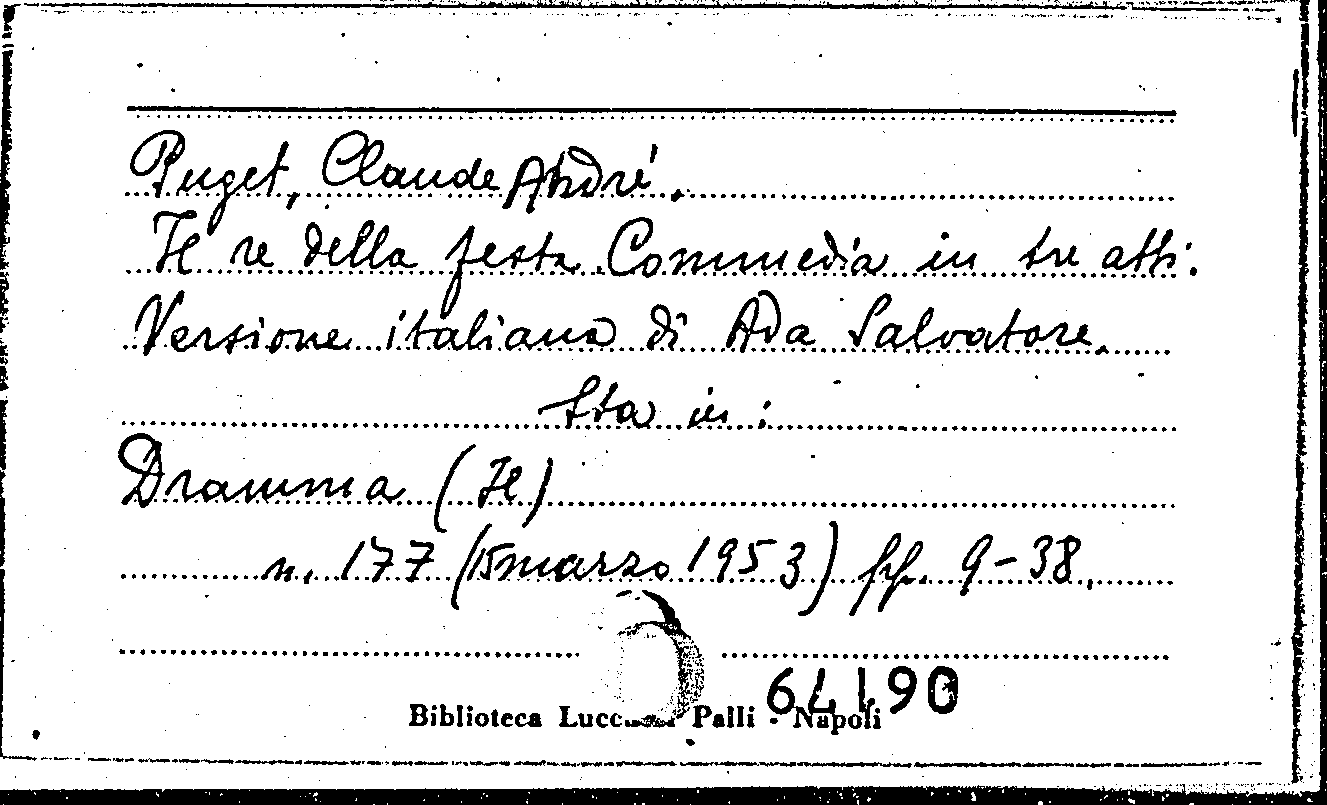 Puget, Claude André.
Il re della festa. Commedia in tre atti.
Versione italiana di Ada Salvatore.
Sta in:
Dramma (Il)
n. 177 (15 marzo 1953) pp. 9-38.
64190
Biblioteca Palli - Napoli